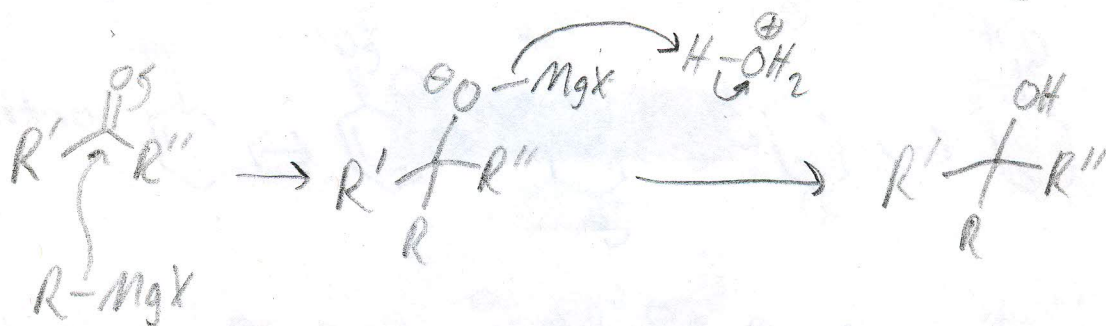 O
R' R''
R-MgX
⊖O-MgX
R' R''
R
H-OH2
⊕
OH
R' R''
R